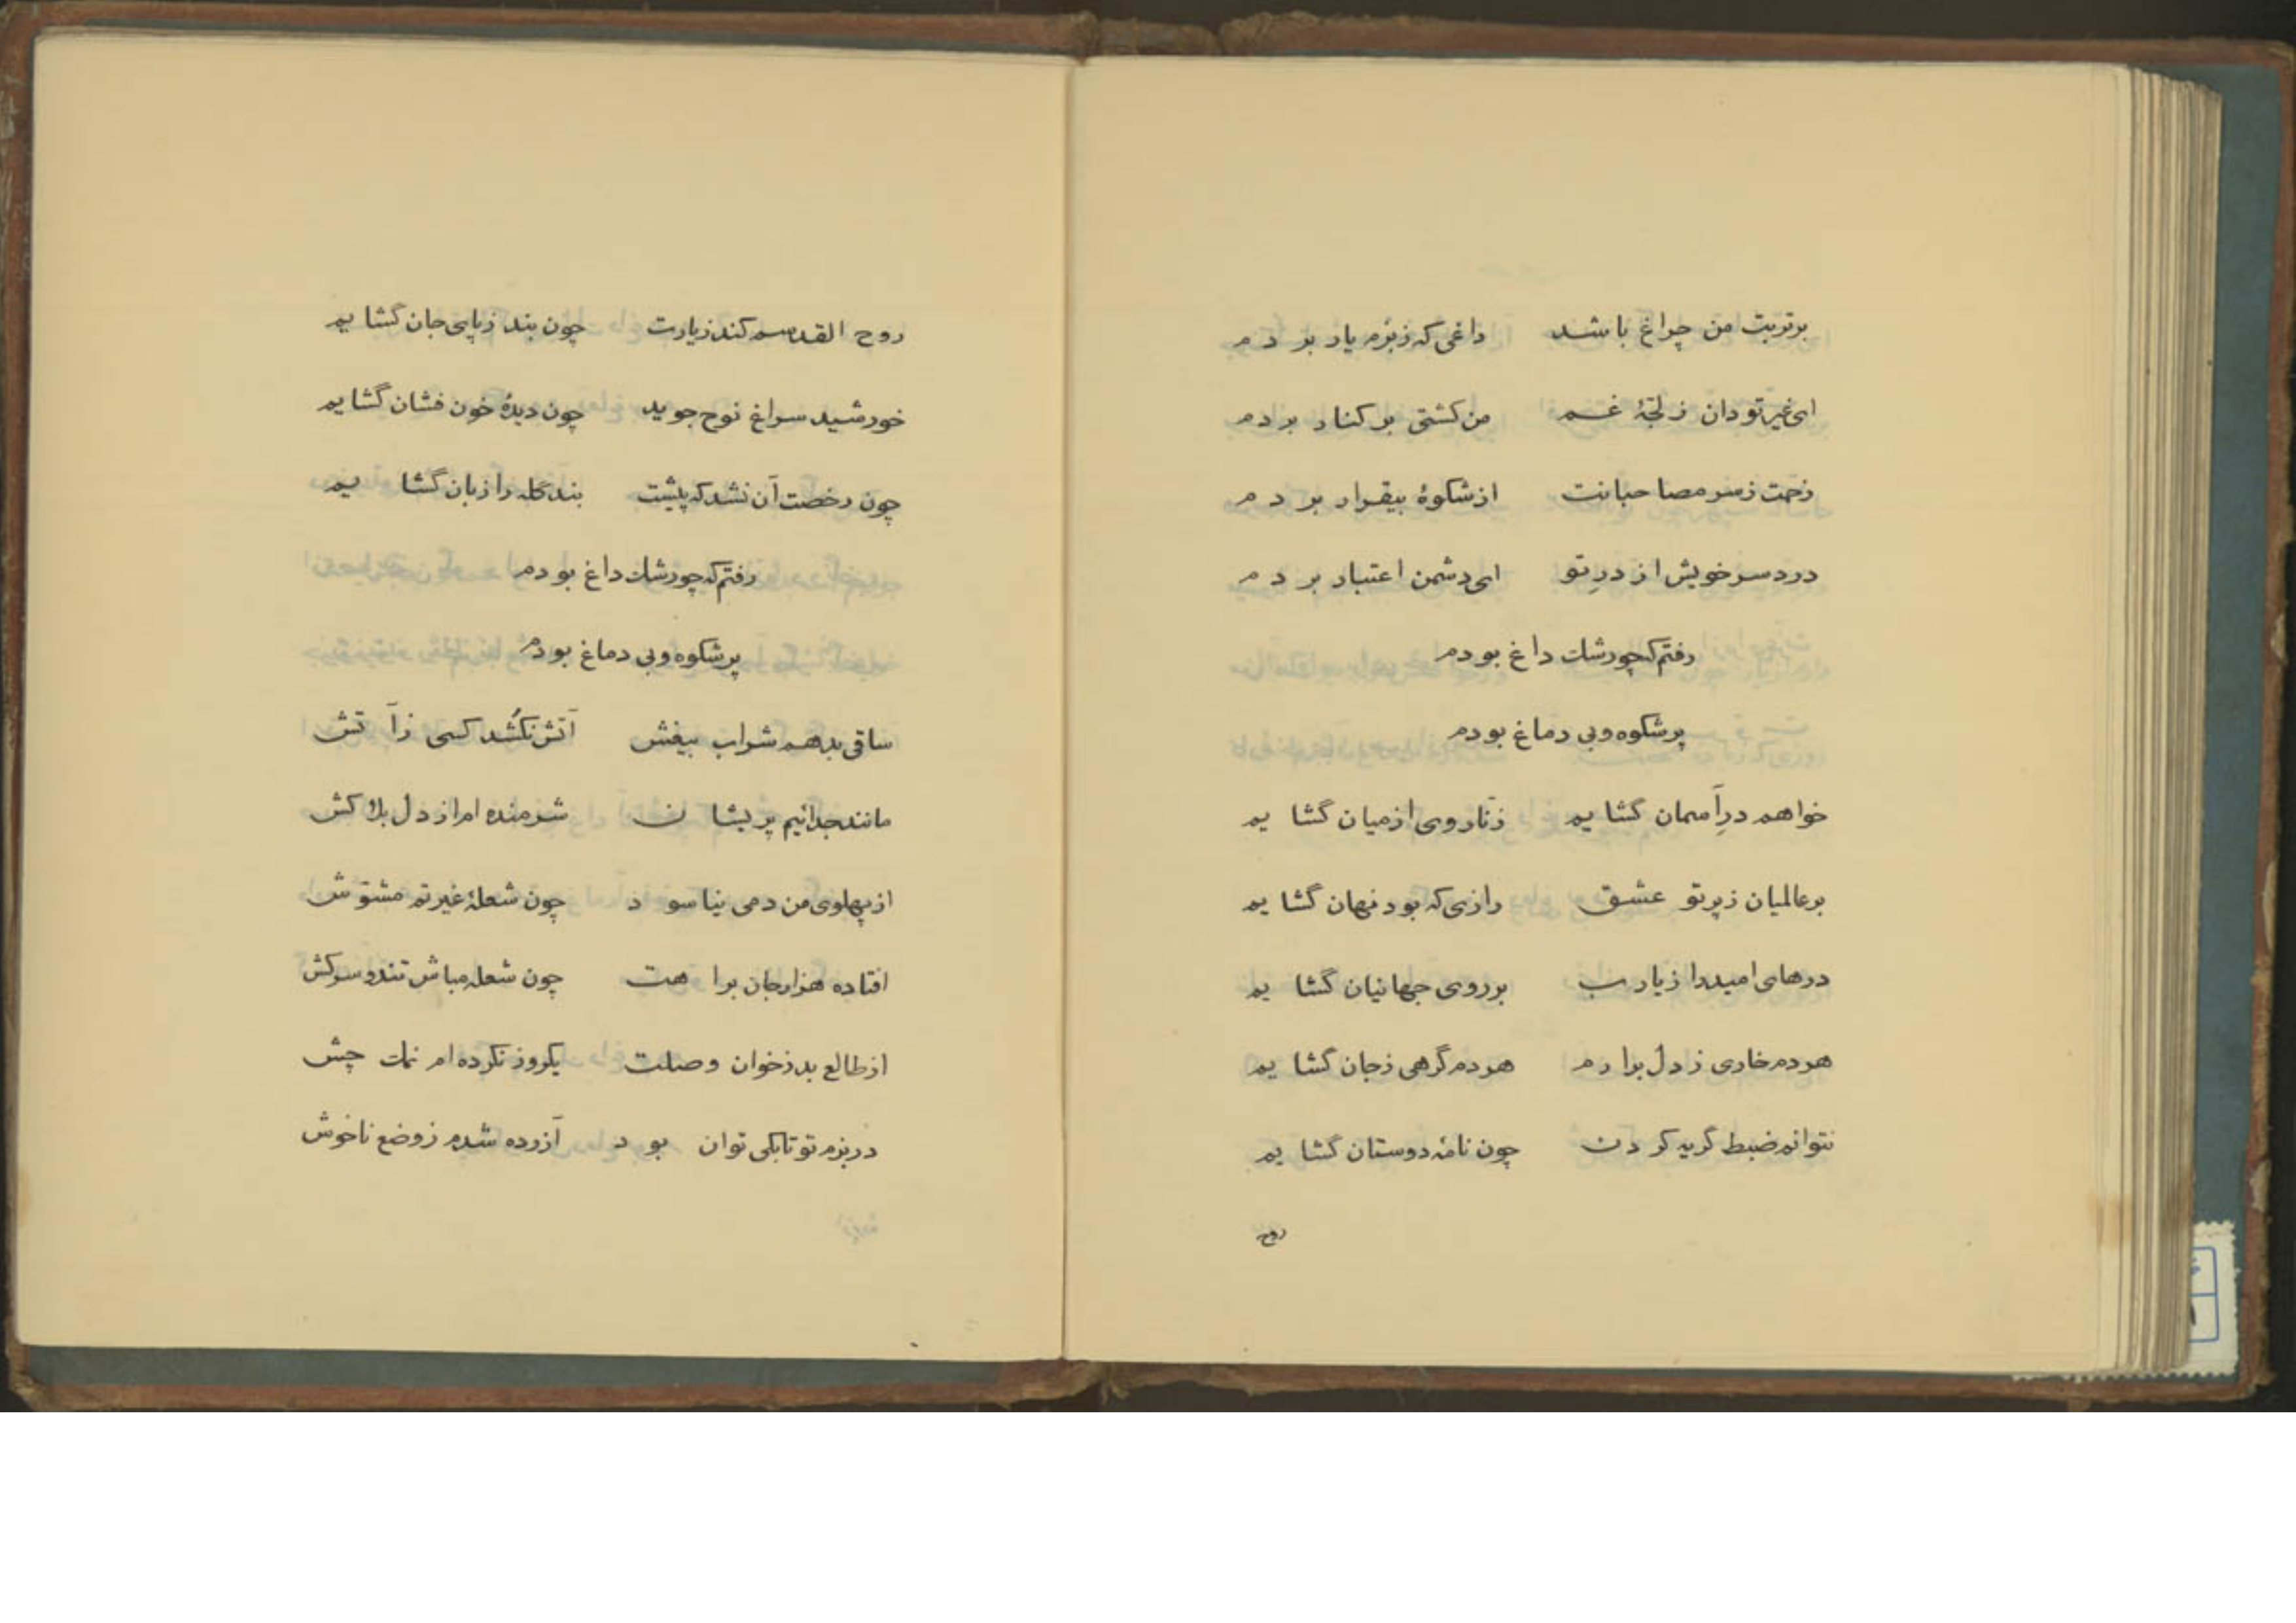 برتربت من چراغ باشد داغی که زبزم یار بردم
ای غیر تو دان ز لجّهٔ غم من کشتی بر کنار بردم
زحمت ز سر مصاحبانت از شکوهٔ بیقرار بردم
درد سر خویش از درِ تو ای دشمن اعتبار بردم
رفتم که چو رشک داغ بودم
پر شکوه و بی دماغ بودم
خواهم درِ آسمان گشایم زنّار وی از میان گشایم
بر عالمیان ز پرتو عشق رازی که بود نهان گشایم
درهای امید را ز یارب بر روی جهانیان گشایم
هر دم خاری ز دل برارم هر دم گرهی ز جان گشایم
نتوانم ضبط گریه کردن چون نامهٔ دوستان گشایم
روح
روح القدسم کند زیارت چون بند ز پای جان گشایم
خورشید سراغ نوح جوید چون دیدهٔ خون فشان گشایم
چون رخصت آن نشد که پیشت بند گله را زبان گشایم
رفتم که چو رشک داغ بودم
پر شکوه و بی دماغ بودم
ساقی بدهم شراب بیغش آتش نکُشد کسی ز آتش
مانند جدائیم پریشان شرمنده ام از دل بلاکش
از پهلوی من دمی نیاسود چون شعلهٔ غیرتم مشوّش
افتاده هزار جان براهت چون شعله مباش تند و سرکش
از طالع بد ز خوان وصلت یکروز نکرده ام نمک چش
در بزم تو تا بکی توان بود آزرده شدم ز وضع ناخوش